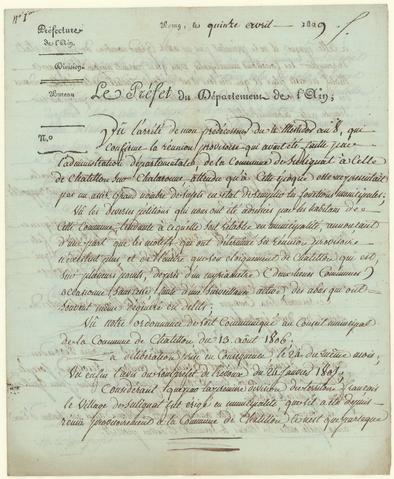 Préfecture
de l'Ain.
Division
Bureau
N.o
Bourg, le quinze avril 1809
Le Préfet du Département de l'Ain;
Vu l'arrêté de mon prédécesseur du Messidor an 8, qui
confirme la réunion provisoire qui avait été faite par
l'administration départementale de la Commune de Sulignat à celle
de Chatillon sur Chalaronne, attendu qu'à cette époque elle ne possédait
pas un assez grand nombre de sujets en état de remplir les fonctions municipales;
Vu les diverses pétitions qui nous ont été adressées par les habitans de
cette Commune tendante à ce qu'elle soit établie en municipalité, remontrant
d'une part que les motifs qui ont déterminé sa réunion provisoire
n'existent plus, et de l'autre que son éloignement de Chatillon qui est,
sur plusieurs points, de près d'un myriamètre (deux lieues communes)
occasionne sans cesse faute d'une surveillance active des abus qui ont
souvent même dégénéré en délits;
Vu notre ordonnance de soit communiqué au Conseil municipal
de la Commune de Chatillon du 13 août 1806;
La délibération prise en conséquence le 24 du même mois;
Vu enfin l'avis du Sousprefet de Trévoux du 24 janvier 1807;
Considérant que par la première division du territoire français
le Village de Sulignat fut érigé en municipalité, qu'il a été depuis
réuni provisoirement à la Commune de Chatillon, et n'est que parceque